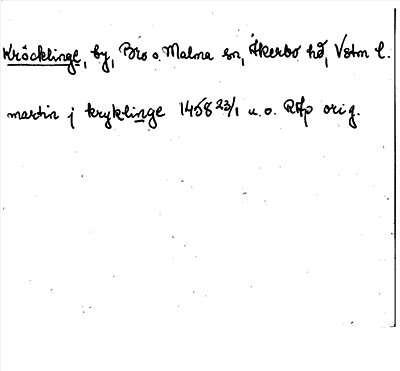 Kröcklinge, by, Bro o. Malma sn, Åkerbo hd, Vstm l.
martin j kryklinge 1458 23/1 u.o. RAp orig.